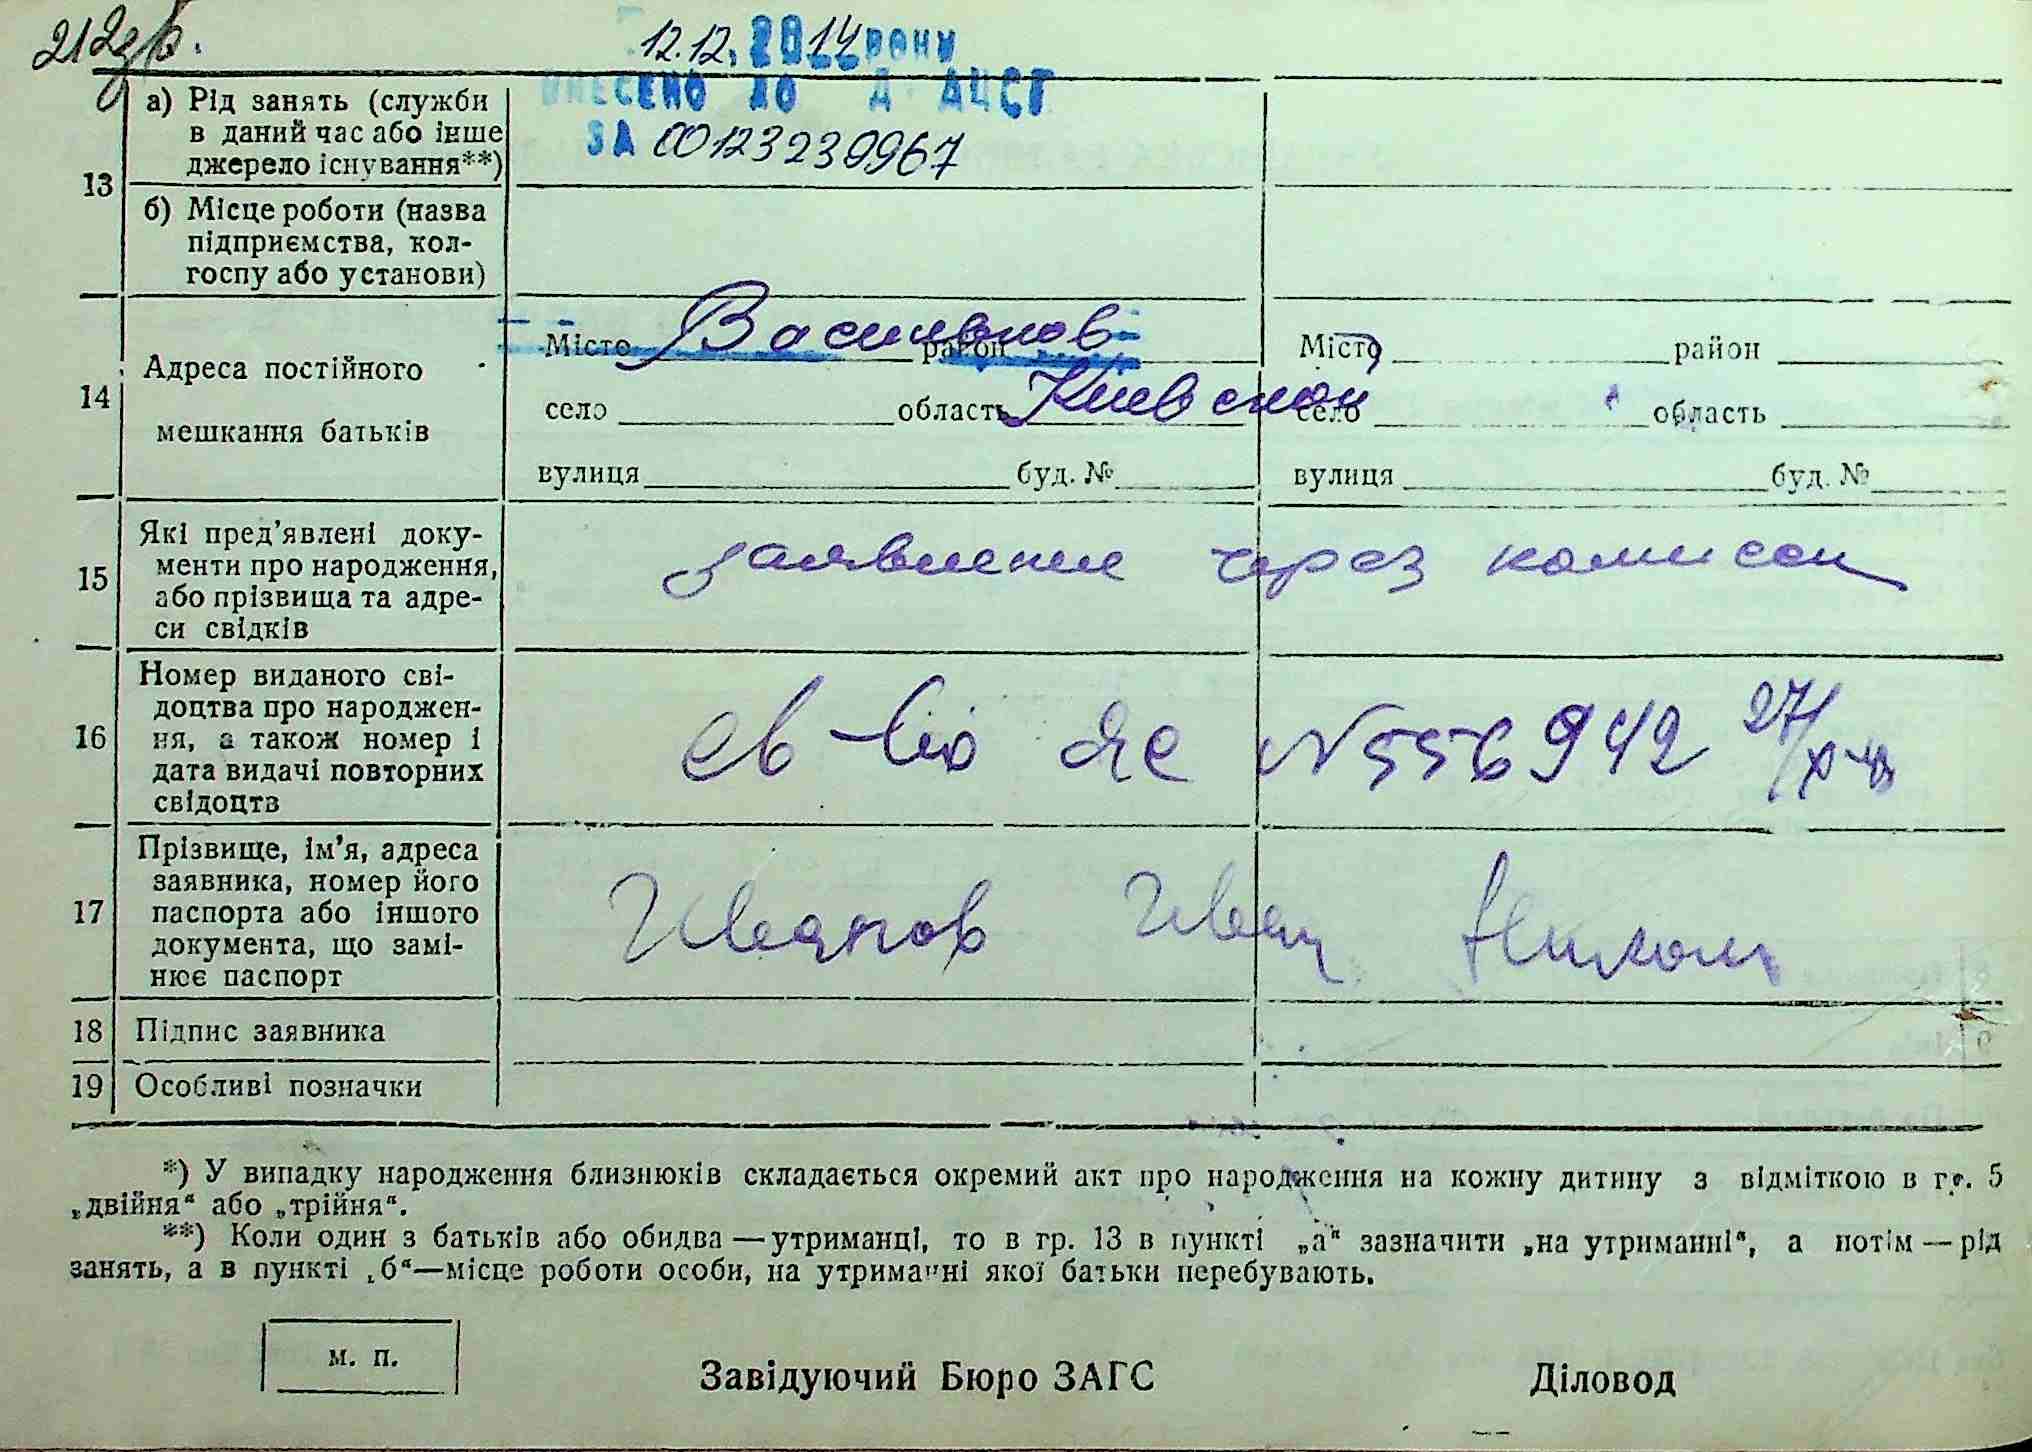 212зб.
12.12.2014 року
ВНЕСЕНО ДО Д АЦСГ
ЗА 00123239967
13
а) Рід занять (служби в даний час або інше джерело існування**)
б) Місце роботи (назва підприємства, колгоспу або установи)
14
Адреса постійного мешкання батьків
Місто Васильков район
село область Киевской
вулиця буд. №
Місто район
село область
вулиця буд. №
15
Які пред'явлені документи про народження, або прізвища та адреси свідків
заявление через комисси
16
Номер виданого свідоцтва про народження, а також номер і дата видачі повторних свідоцтв
св-во ЯС N 556942 27/X
17
Прізвище, ім'я, адреса заявника, номер його паспорта або іншого документа, що замінює паспорт
Иванов Иван Никол
18 Підпис заявника
19 Особливі позначки
*) У випадку народження близнюків складається окремий акт про народження на кожну дитину з відміткою в гр. 5
„двійня“ або „трійня“.
**) Коли один з батьків або обидва — утриманці, то в гр. 13 в пункті „а“ зазначити „на утриманні“, а потім — рід
занять, а в пункті „б“—місце роботи особи, на утриманні якої батьки перебувають.
м. п.
Завідуючий Бюро ЗАГС Діловод